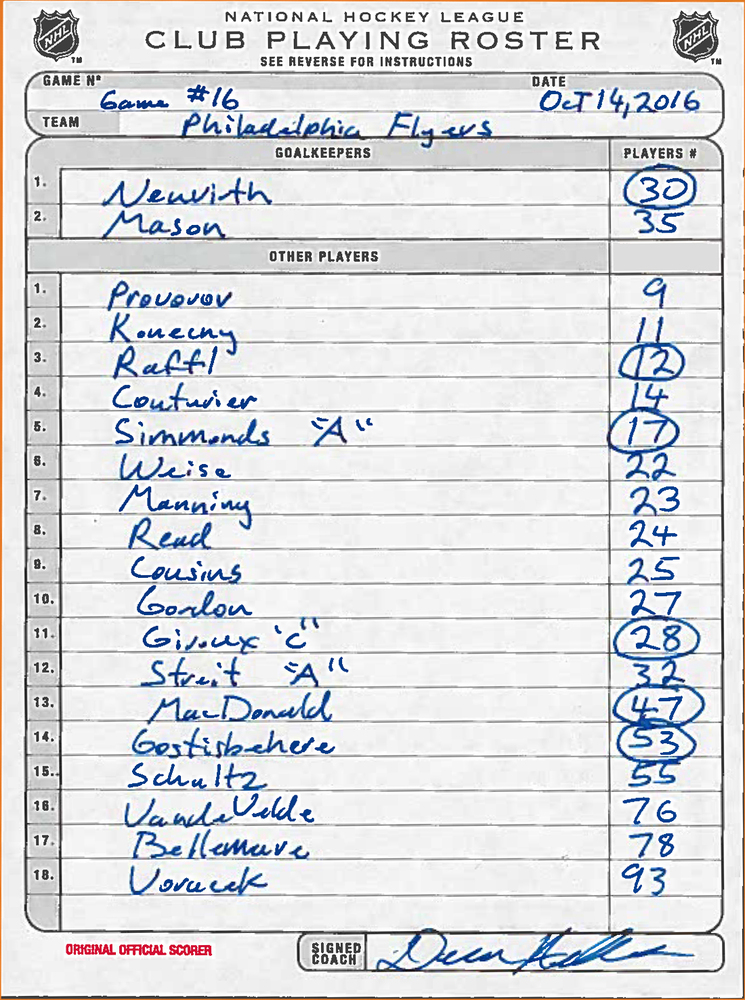 NATIONAL HOCKEY LEAGUE
NHL CLUB PLAYING ROSTER NHL
TM SEE REVERSE FOR INSTRUCTIONS TM
GAME Nº Game #16 DATE Oct 14, 2016
TEAM Philadelphia Flyers
GOALKEEPERS PLAYERS #
1. Neuvirth 30
2. Mason 35
OTHER PLAYERS
1. Provorov 9
2. Konecny 11
3. Raffl 12
4. Couturier 14
5. Simmonds "A" 17
6. Weise 22
7. Manning 23
8. Read 24
9. Cousins 25
10. Gordon 27
11. Giroux "C" 28
12. Streit "A" 32
13. MacDonald 47
14. Gostisbehere 53
15. Schultz 55
16. VandeVelde 76
17. Bellemare 78
18. Voracek 93
ORIGINAL OFFICIAL SCORER SIGNED COACH